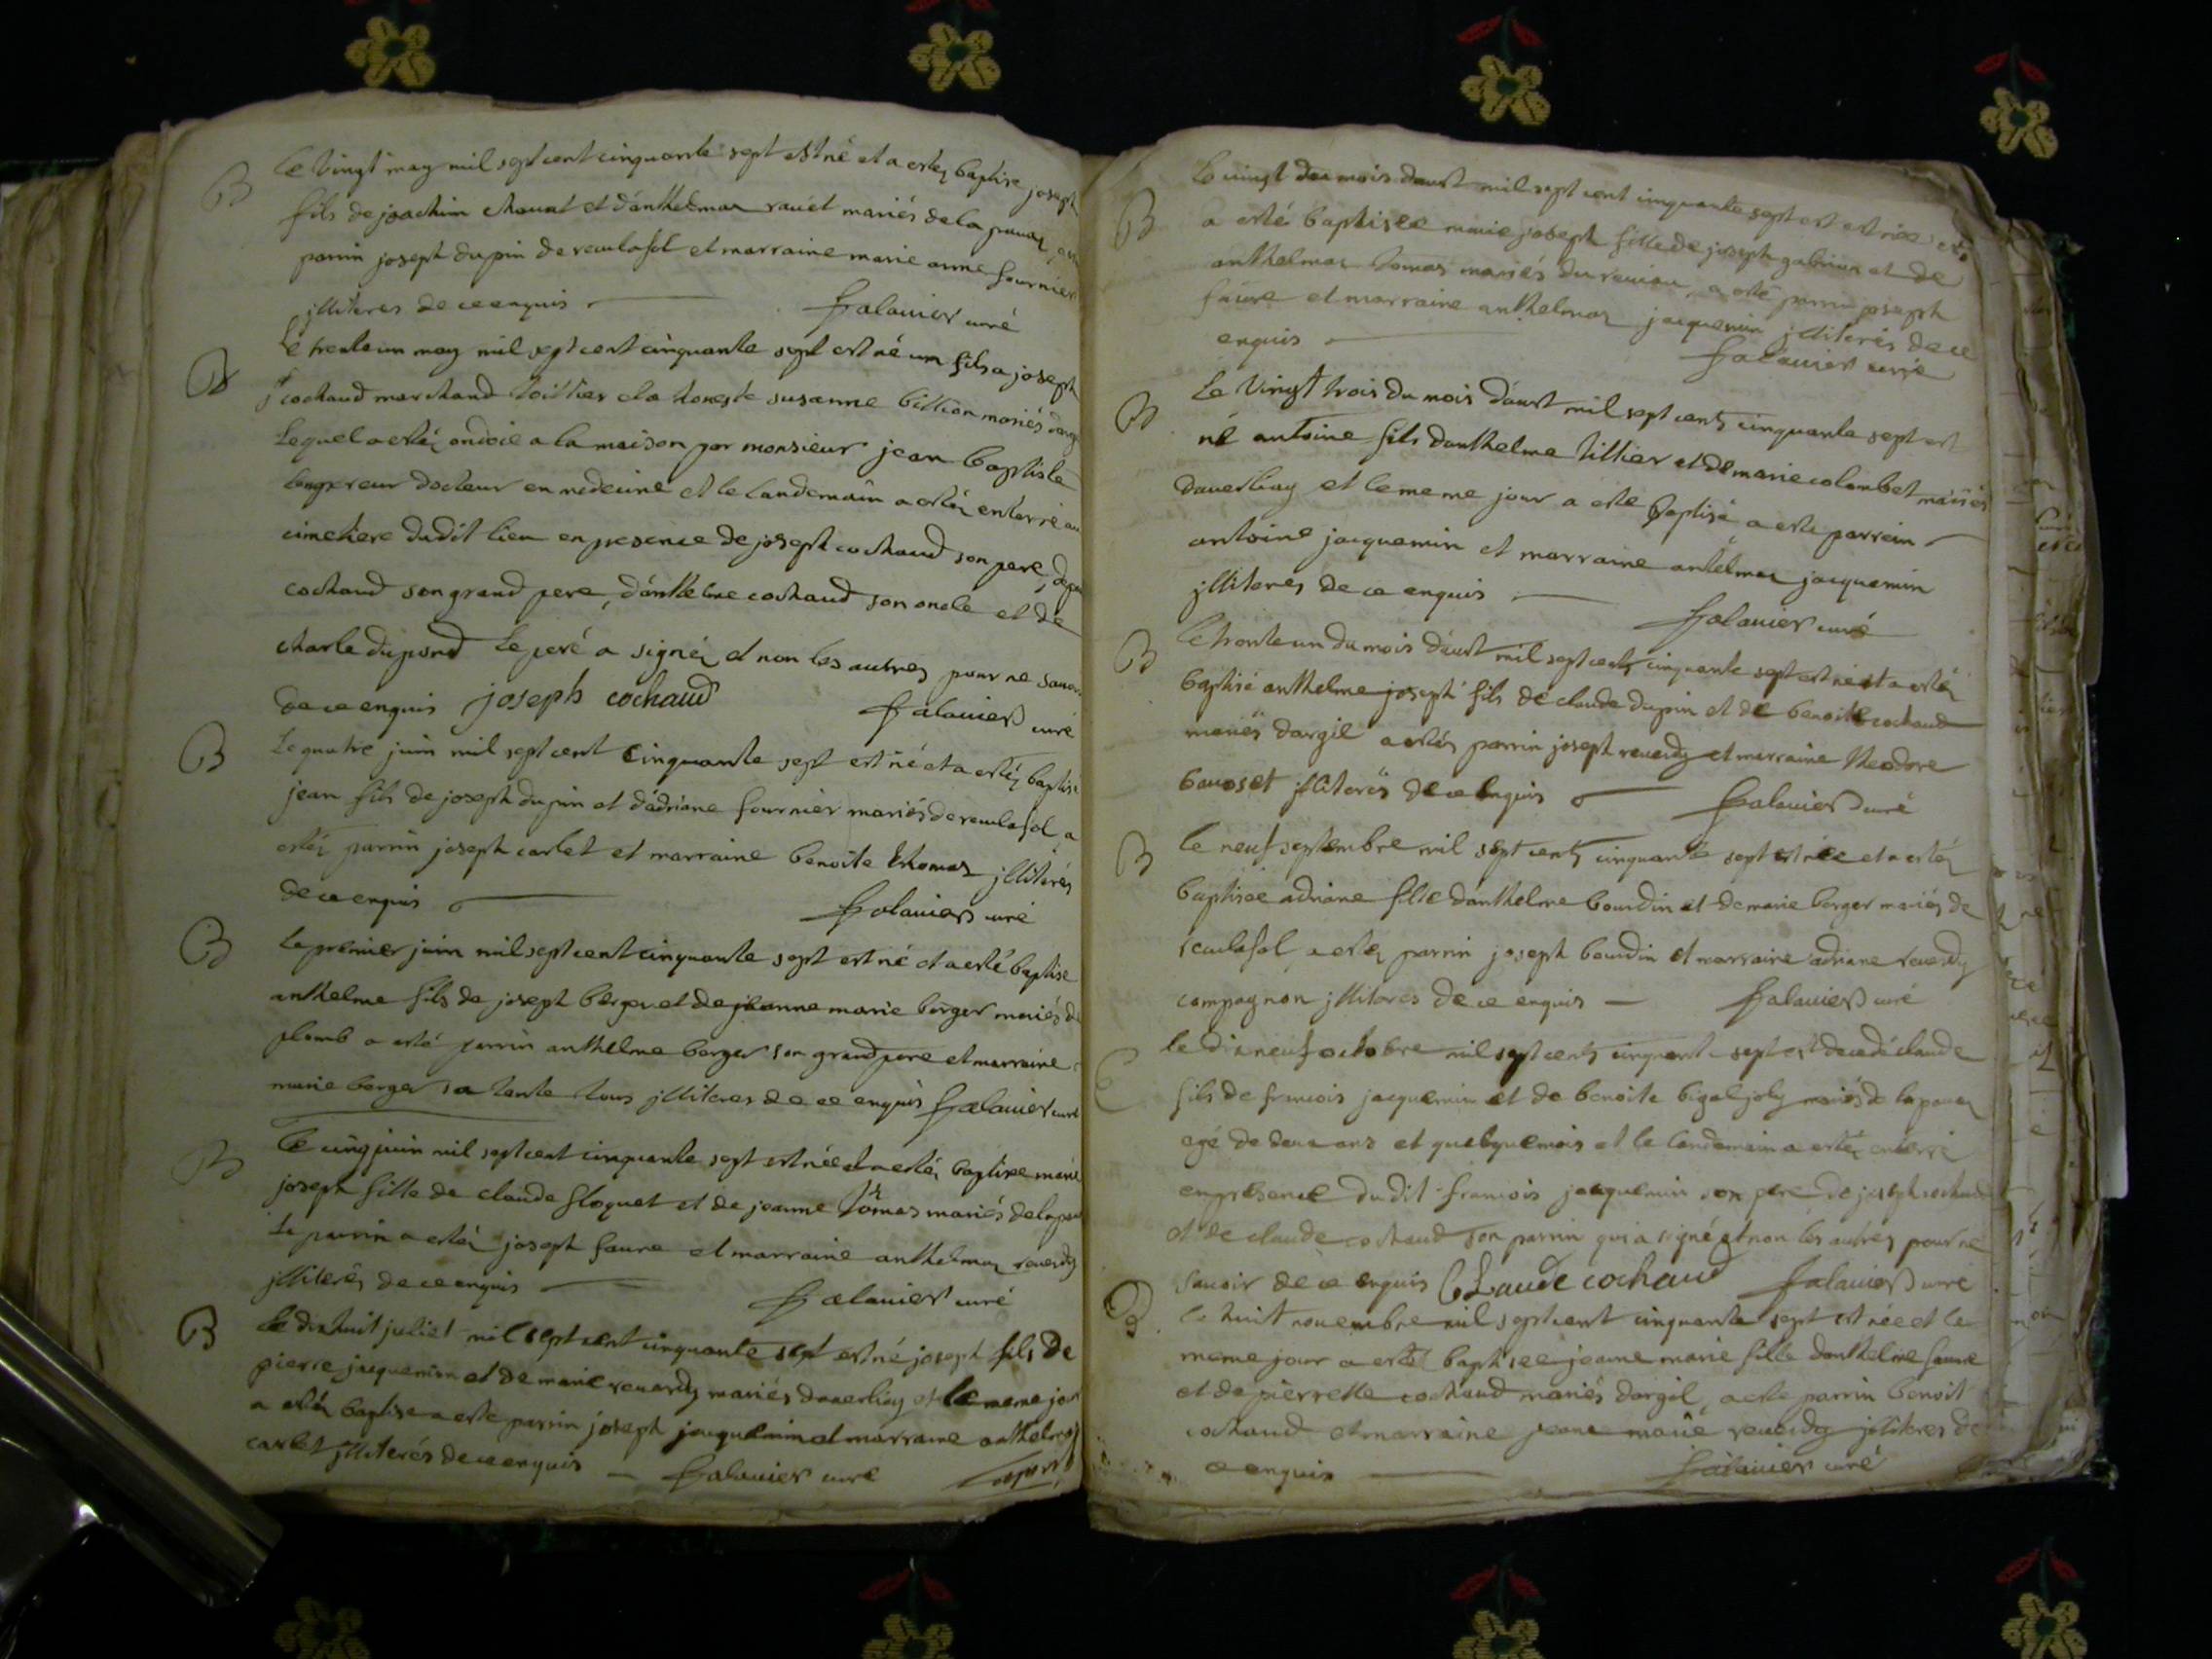 B
Le vingt may mil sept cent cinquante sept est né et a estéz baptisé joseph
fils de joachim et d'anthelmaz mariés de la
parrin joseph dupin de remlasol et marraine marie anne fournier
jlliteres de ce enquis falavier curé
Le trente un may mil sept cent cinquante sept est né un fils a joseph
cochaud marchand et a honeste susanne billion mariés
Lequel a estéz ondoié a la maison par monsieur jean baptiste
docteur en medecine et le landemain a estéz enterré au
cimetiere dudit lieu en presence de joseph cochaud son pere
cochaud son grand pere, d'anthelme cochaud son oncle et de
charle dupond Le peré a signéz et non les autres pour ne savoir
de ce enquis joseph cochaud falavier curé
B
Le quatre juin mil sept cent cinquante sept est né et a estéz baptisé
jean fils de joseph dupin et d'adriane fournier mariés de remlasol a
estéz parrin joseph carlet et marraine benoite thomas jlliterés
de ce enquis falavier curé
B
Le premier juin mil sept cent cinquante sept est né et a esté baptisé
anthelme fils de joseph berger et de jeanne marie berger mariés de
plomb a esté parrin anthelme berger son grand pere et marraine
marie berger sa tante tous jlliteres de ce enquis falavier curé
B
Le cinq juin mil sept cent cinquante sept est née et a estéz baptisee marie
joseph fille de claude floquet et de jeanne tomas mariés
Le parrin a estéz joseph faure et marraine anthelmaz reverdy
jlliterés de ce enquis falavier curé
B
Le dixhuit juliet mil sept cent cinquante sept est né joseph fils de
pierre jacquemin et de marie reverdy mariés daverliay et le meme jour
a estéz baptisé a esté parrin joseph jacquemin et marraine anthelmaz
carlet jlliterés de ce enquis falavier curé
B
Le vingt du mois daust mil sept cent cinquante sept est née et
a esté baptisee marie joseph fille de joseph et de
anthelmaz tomas mariés du a esté parrin joseph
faure et marraine anthelmaz jacquemin jlliterés de ce
enquis falavier curé
B
Le vingt trois du mois d'aust mil sept cents cinquante sept est
né antoine fils danthelme tillier et de marie colombet mariés
daverliay et le meme jour a esté baptisé a esté parrein
antoine jacquemin et marraine antelmaz jacquemin
jlliteres de ce enquis falavier curé
B
Le trente un du mois d'aust mil sept cents cinquante sept est né et a estéz
baptisé anthelme joseph fils de claude dupin et de benoite cochaud
mariés dargil a estéz parrin joseph reverdy et marraine theodore
bavoset jlliterés de ce enquis falavier curé
B
le neuf septembre mil sept cents cinquante sept est née et a estéz
baptisée adriane fille danthelme bourdin et de marie berger mariés de
remlasol a estéz parrin joseph bourdin et marraine adriane reverdy
compagnon jlliteres de ce enquis falavier curé
le dix neuf octobre mil sept cents cinquante sept est decedé claude
fils de francois jacquemin et de benoite mariés de
agé de deux ans et quelque mois et le landemain a estéz enterré
en presence dudit francois jacquemin son pere de joseph cochaud
et de claude cochaud son parrin qui a signé et non les autres pour ne
savoir de ce enquis Claude cochaud falavier curé
B
le huit novembre mil sept cent cinquante sept est née et le
meme jour a estéz baptisee jeanne marie fille danthelme faure
et de pierrette cochaud mariés dargil, a esté parrin benoit
cochaud et marraine jeane marie reverdy jlliteres de
ce enquis falavier curé